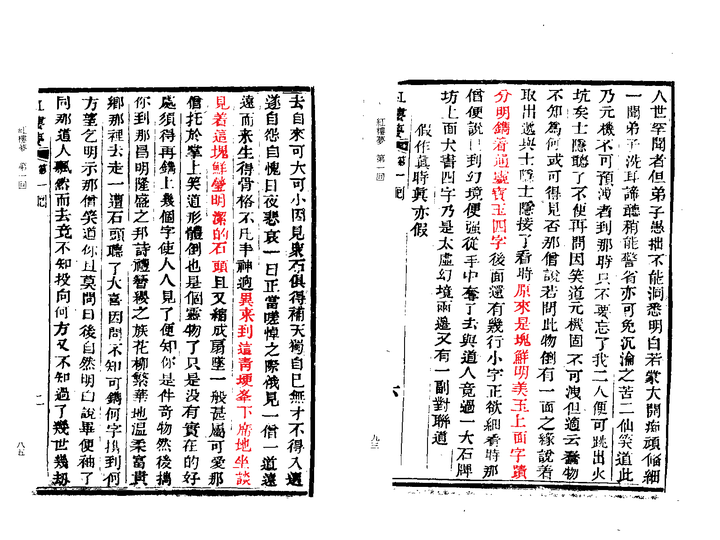 人世罕聞者但弟子愚拙不能洞悉明白若蒙大開痴頑備細
一聞弟子洗耳諦聽稍能警省亦可免沉淪之苦二仙笑道此
乃元機不可預洩者到那時只不要忘了我二人便可跳出火
坑矣士隱聽了不便再問因笑道元機固不可洩但適云蠢物
不知為何或可得見否那僧說若問此物倒有一面之緣說着
取出遞與士隱士隱接了看時原來是塊鮮明美玉上面字蹟
分明鐫着通靈寶玉四字後面還有幾行小字正欲細看時那
僧便說已到幻境便強從手中奪了去與道人竟過一大石牌
坊上面大書四字乃是太虛幻境兩邊又有一副對聯道
假作真時真亦假
紅樓夢 第一回 六
紅樓夢 第一回 九三
去自來可大可小因見衆石俱得補天獨自己無才不得入選
遂自怨自愧日夜悲哀一日正當嗟悼之際俄見一僧一道遠
遠而來生得骨格不凡丰神迥異來到這青埂峯下席地坐談
見着這塊鮮瑩明潔的石頭且又縮成扇墜一般甚屬可愛那
僧托於掌上笑道形體倒也是個靈物了只是没有實在的好
處須得再鐫上幾個字使人人見了便知你是件奇物然後携
你到那昌明隆盛之邦詩禮簪纓之族花柳繁華地溫柔富貴
鄉那裡去走一遭石頭聽了大喜因問不知可鐫何字携到何
方望乞明示那僧笑道你且莫問日後自然明白說畢便袖了
同那道人飄然而去竟不知投向何方又不知過了幾世幾劫
紅樓夢 第一回 二
紅樓夢 第一回 八五